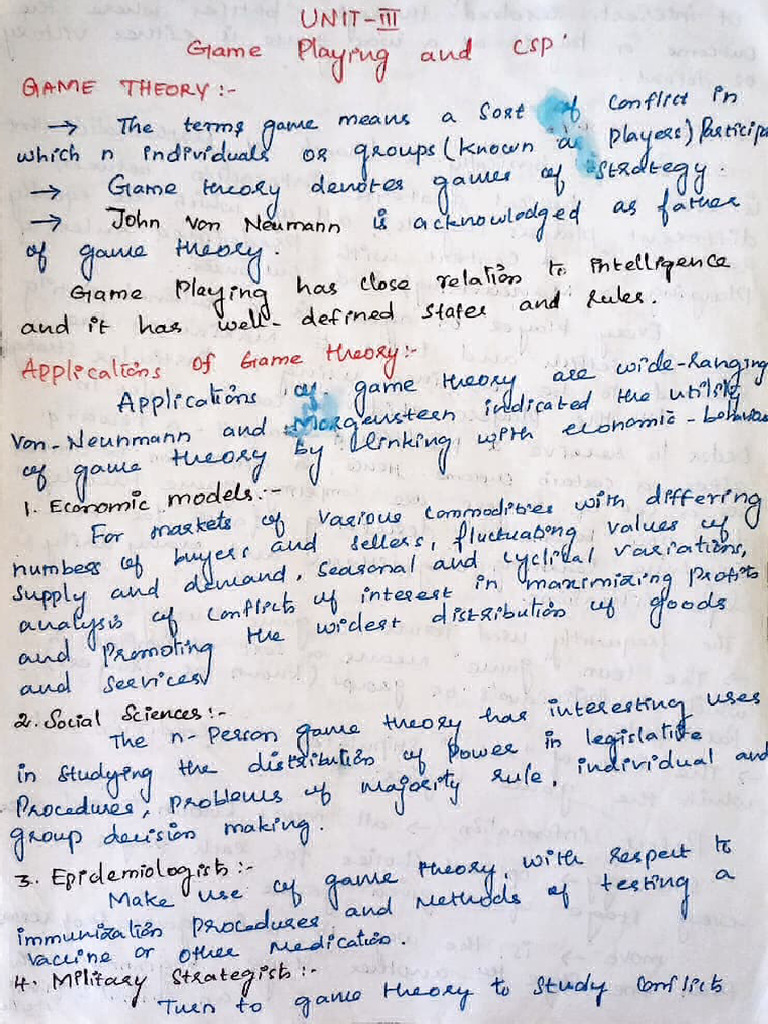 UNIT-III
Game Playing and CSP
GAME THEORY:-
→ The terms game means a Sort of Conflict in
which n individuals or groups (known as players) Particip
→ Game theory denotes games of Strategy.
→ John Von Neumann is acknowlodged as father
of game theory.
Game Playing has close relation to intelligence
and it has well-defined states and rules.
Applications of Game theory:-
Applications of game theory are wide-ranging
Von-Neunmann and Morgenstern indicated the utility
of game theory by linking with economic-behaviour
1. Economic models:-
For markets of various commodities with differing
numbers of buyers and sellers, fluctuating values of
supply and demand, seasonal and cyclical variations,
analysis of conflicts of interest in maximizing profits
and promoting the widest distribution of goods
and services
2. Social Sciences:-
The n-Person game theory has interesting uses
in studying the distribution of Power in legislative
Procedures, problems of majority rule, individual and
group decision making.
3. Epidemiologists:-
Make use of game theory with respect to
immunization procedures and methods of testing a
vaccine or other medication.
4. Military Strategists:-
Turn to game theory to study conflicts